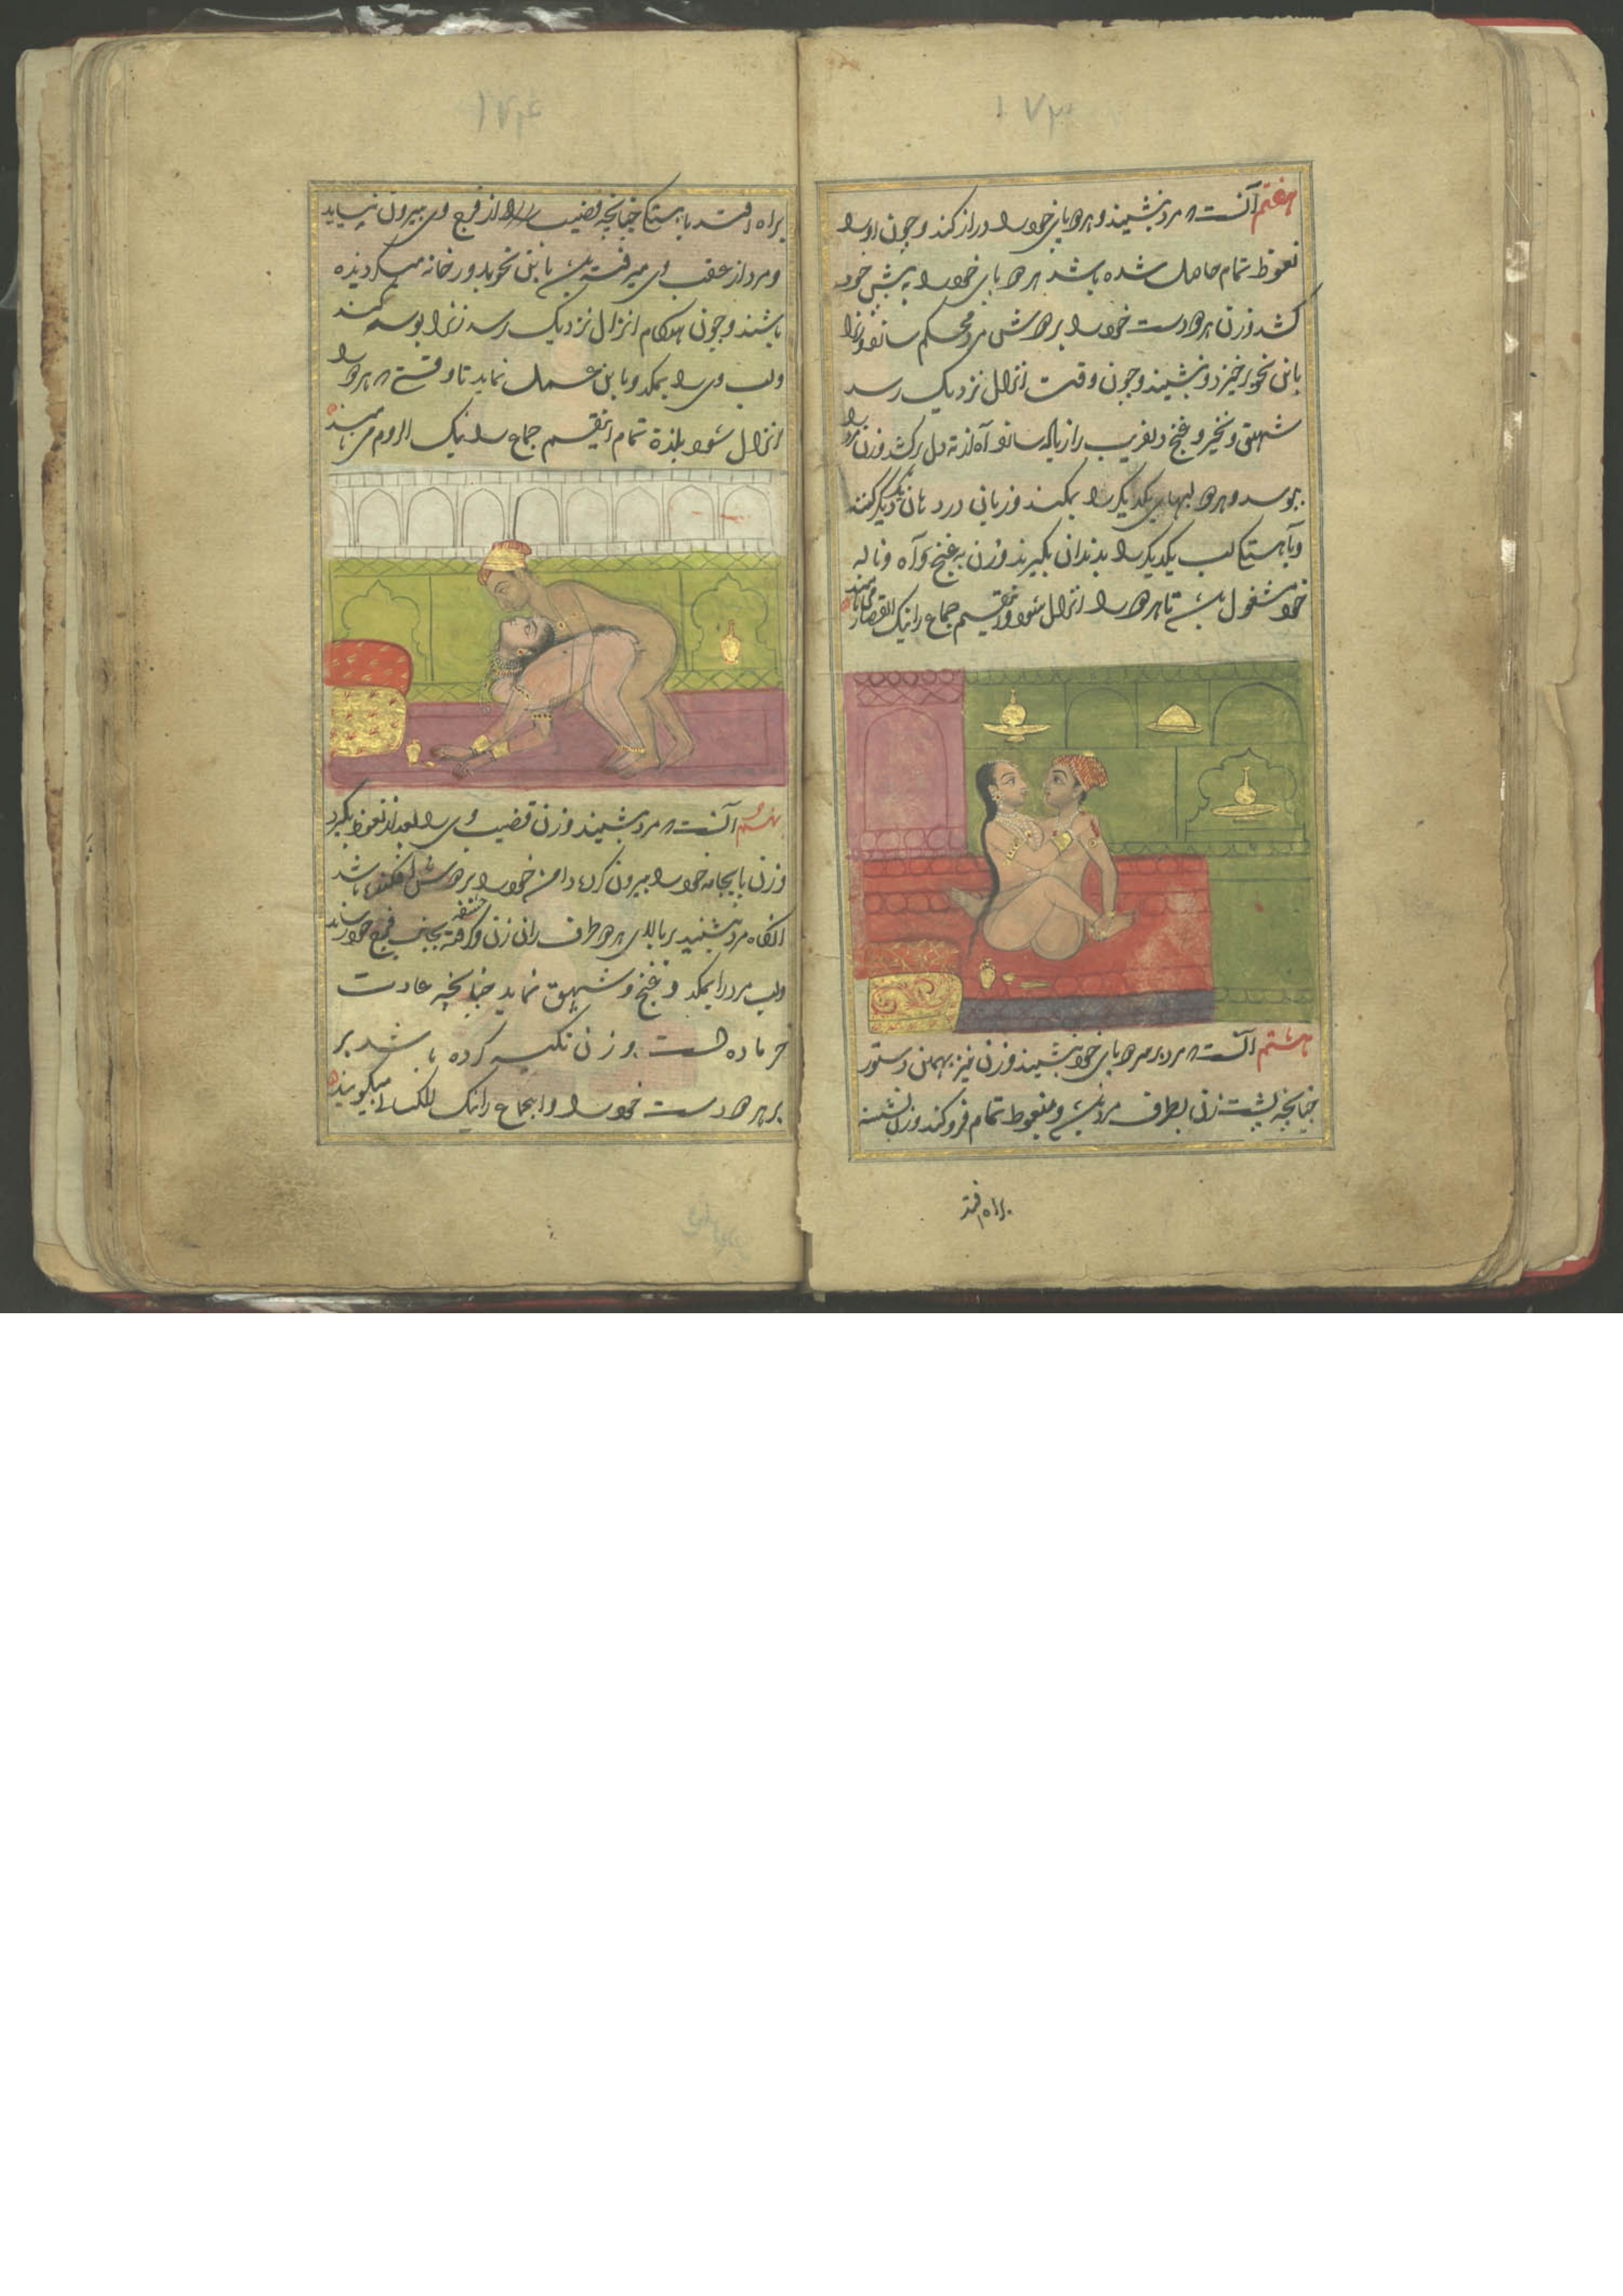 ۱۷۳
هفتم آنست که مرد بنشیند و هر دو پای خود را دراز کند و چون او را
نعوظ تمام حاصل شده باشد هر دو پای خود را به پیش خود
کشد و زن هر دو دست خود را بر دوش مرد محکم سازد و
باین نحو برخیزد و نشیند و چون وقت انزال نزدیک رسد
شهیق و نخیر و غنج دلفریب را زیاده سازد و آه از ته دل برکشد و زن مرد را
ببوسد و هر دو لبهای یکدیگر را بمکند و زبان در دهان یکدیگر کنند
و باهستکی لب یکدیگر را بدندان بگیرند و زن به غنج و آه و ناله
خود مشغول باشد تا هر دو را انزال شود و این قسم جماع را نیک
هشتم آنست که مرد بر سر دو پای خود بنشیند و زن نیز بهمین دستور
چنانچه پشت زن بطرف مرد باشد و نعوظ تمام فرو کند و زن
براه افتد
۱۷۴
براه افتد باهستکی چنانچه قضیب از فرج وی بیرون نیاید
و مرد از عقب وی میرفته باشد باین نحو بدور خانه میکردیده
باشند و چون هنکام انزال نزدیک رسد زن را بوسه کند
و لب وی را بمکد و باین عمل نماید تا وقتی که هر دو را
انزال شود بلذة تمام اینقسم جماع را نیک الروم می نامند
نهم آنست که مرد بنشیند و زن قضیب وی را بعد از نعوظ بگیرد
و زن پایجامه خود را بیرون کرده دامن خود را بر دوش افکنده باشد
آنکاه مرد بنشیند بر بالای هر دو طرف ران زن و حشفه بجانب فرج خود رساند
و لب مرد را بمکد و غنج و شهیق نماید چنانچه عادت
خر ماده است و زن تکیه کرده باشد بر
بر هر دو دست خود را و اینجماع را نیک میکویند